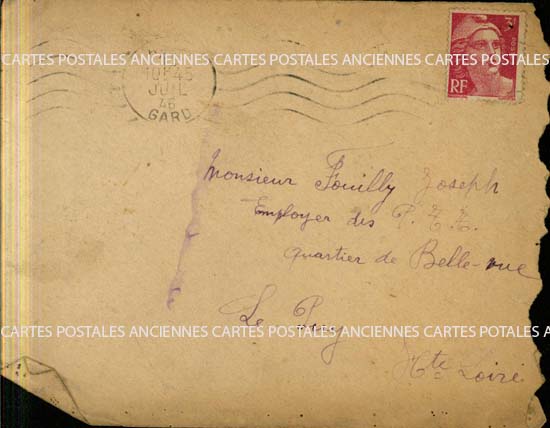 CARTES POSTALES ANCIENNES CARTES POSTALES ANCIENNES CARTES POSTALES ANCIENNES
10H45
JUIL
46
GARD
3F
RF
Monsieur Fouilly Joseph
Employer des P.T.T.
quartier de Belle-vue
Le Puy
CARTES POSTALES ANCIENNES CARTES POSTALES ANCIENNES CARTES POSTALES ANCIENNES
Hte Loire